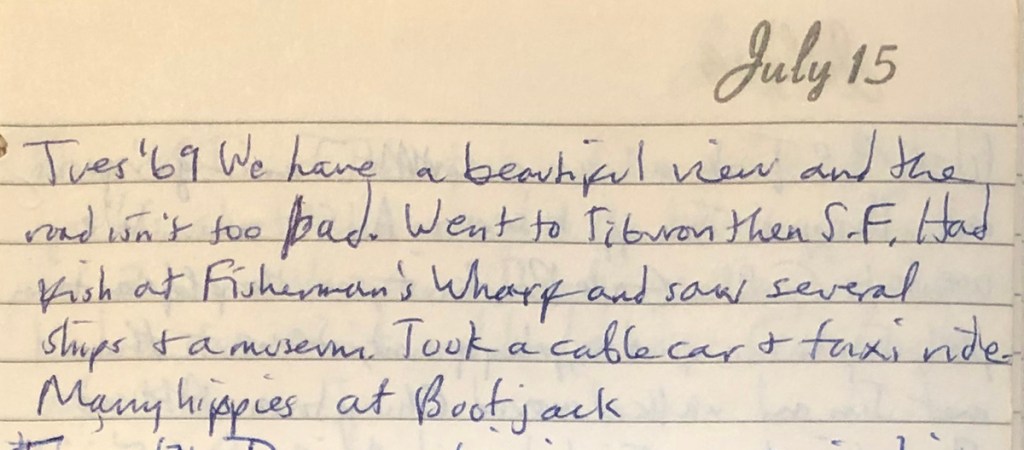 July 15
Tues '69 We have a beautiful view and the
road isn't too bad. Went to Tiburon then S.F. Had
fish at Fisherman's Wharf and saw several
ships + a museum. Took a cable car + taxi ride.
Many hippies at Bootjack